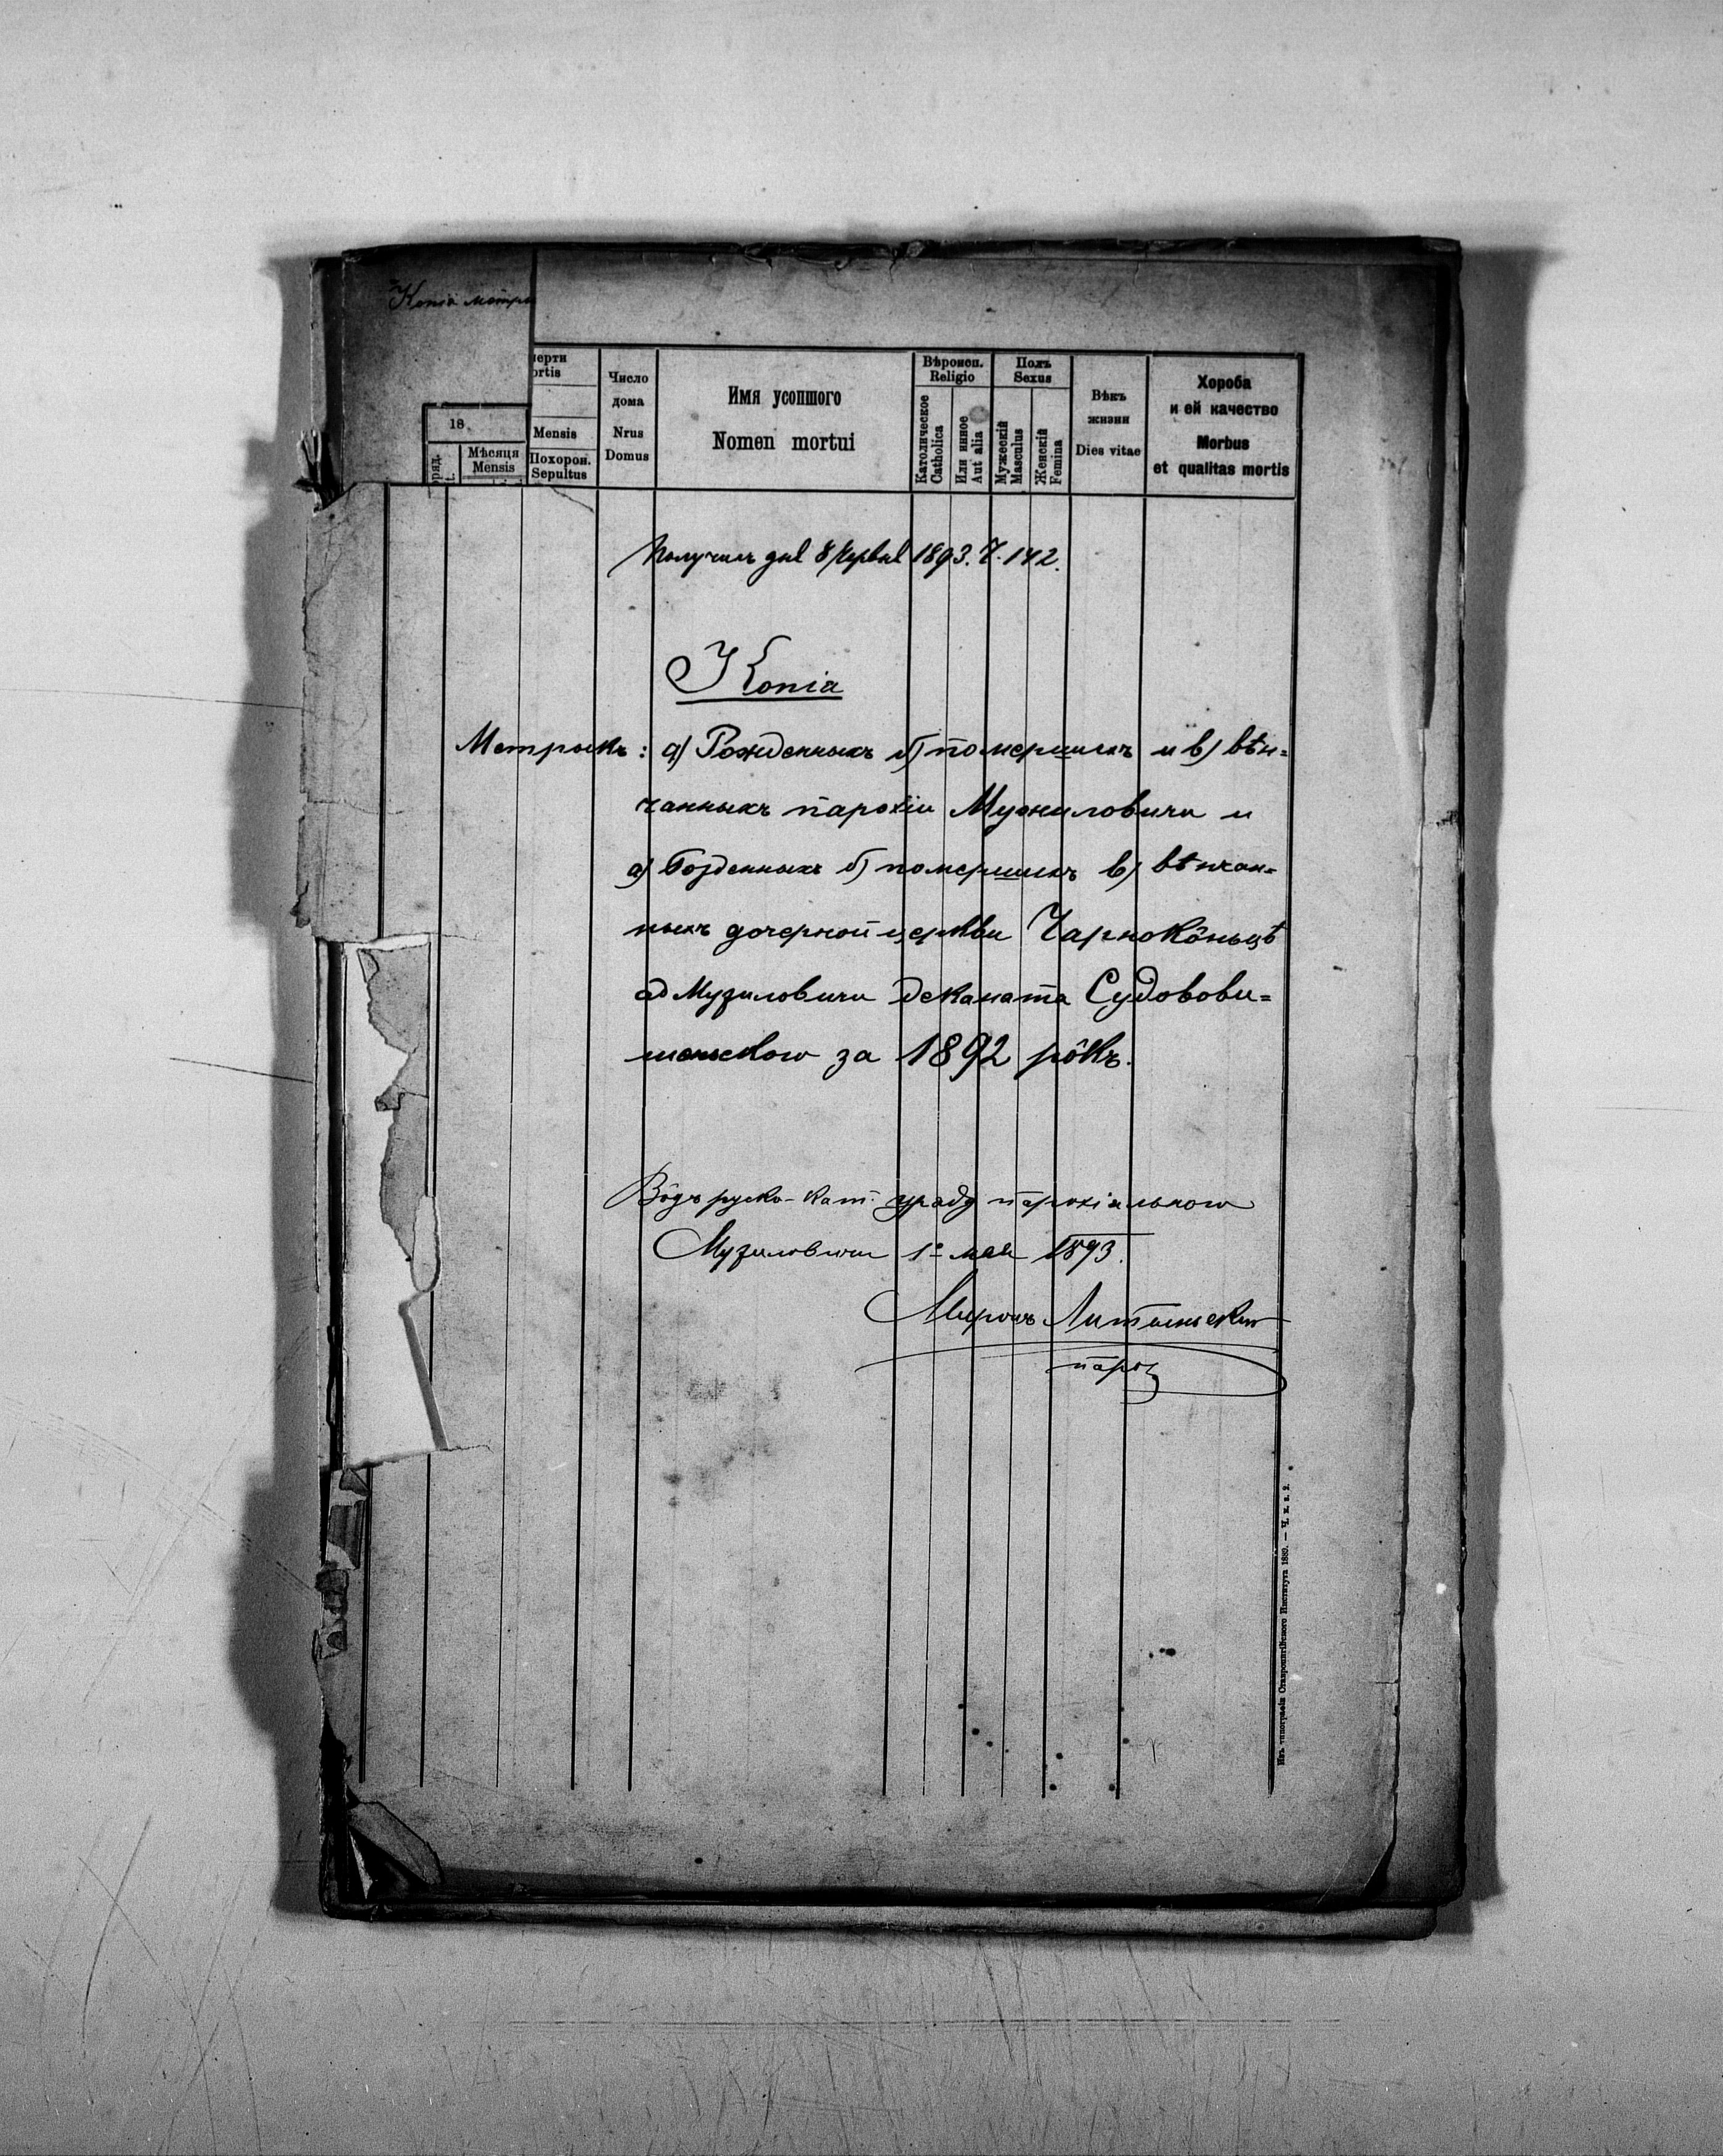 Копія метри
мерти
ortis
Число
дома
Nrus
Domus
Имя усопшого
Nomen mortui
Вѣроисп.
Religio
Католическое
Catholica
Или инное
Aut alia
Полъ
Sexus
Мужескій
Masculus
Женскій
Femina
Вѣкъ
жизни
Dies vitae
Хороба
и ей качество
Morbus
et qualitas mortis
18
Мѣсяця
Mensis
Mensis
Похорон.
Sepultus
Получилъ дня 8 Червня 1893. Ч. 142.
Копіа
Метрыкъ: а) Рожденныхъ б) помершихъ и в) вѣн-
чанныхъ парохіи Мужиловичи и
а) Рожденныхъ б) помершихъ в) вѣнчан-
ныхъ дочерной церкви Чарнокôньцѣ
ад Музиловичи деканата Судовови-
шеньского за 1892 рôкъ.
Вôдъ руско-кат. уряду парохіального
Музиловичи 1º мая 1893.
Миронъ
парох
Изъ типографіи Ставропигійского Института 1880. — Ч. к. з. 2.